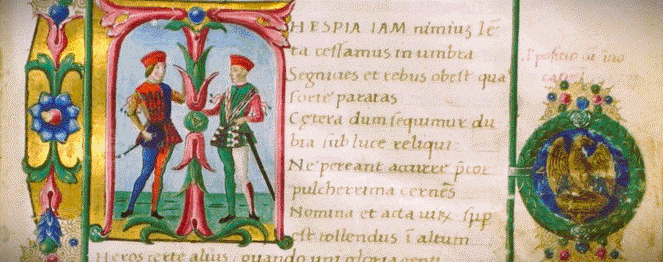 HESPIA IAM nimiuʒ lē
ta cessamus in umbra
Segnicies et rebus obest qua
forte paratas
Cętera dum sequimur du
bia sub luce reliqui:
Ne pereant accurre p̄cor
pulcherrima cernēs
Nomina et acta sup
est tollendus ī altum
Heros certe alius: quando uni gloria genti